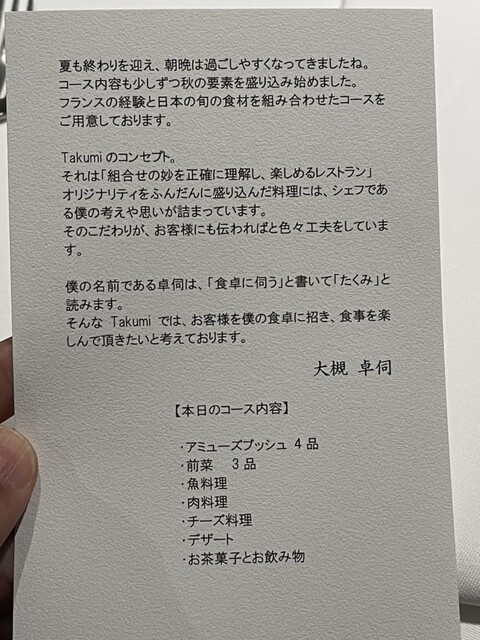 夏も終わりを迎え、朝晩は過ごしやすくなってきましたね。
コース内容も少しずつ秋の要素を盛り込み始めました。
フランスの経験と日本の旬の食材を組み合わせたコースを
ご用意しております。
Takumiのコンセプト。
それは「組合せの妙を正確に理解し、楽しめるレストラン」
オリジナリティをふんだんに盛り込んだ料理には、シェフであ
る僕の考えや思いが詰まっています。
そのこだわりが、お客様にも伝わればと色々工夫をしていま
す。
僕の名前である卓伺は、「食卓に伺う」と書いて「たくみ」と
読みます。
そんな Takumi では、お客様を僕の食卓に招き、食事を楽
しんで頂きたいと考えております。
大槻 卓伺
【本日のコース内容】
・アミューズブッシュ 4品
・前菜 3品
・魚料理
・肉料理
・チーズ料理
・デザート
・お茶菓子とお飲み物